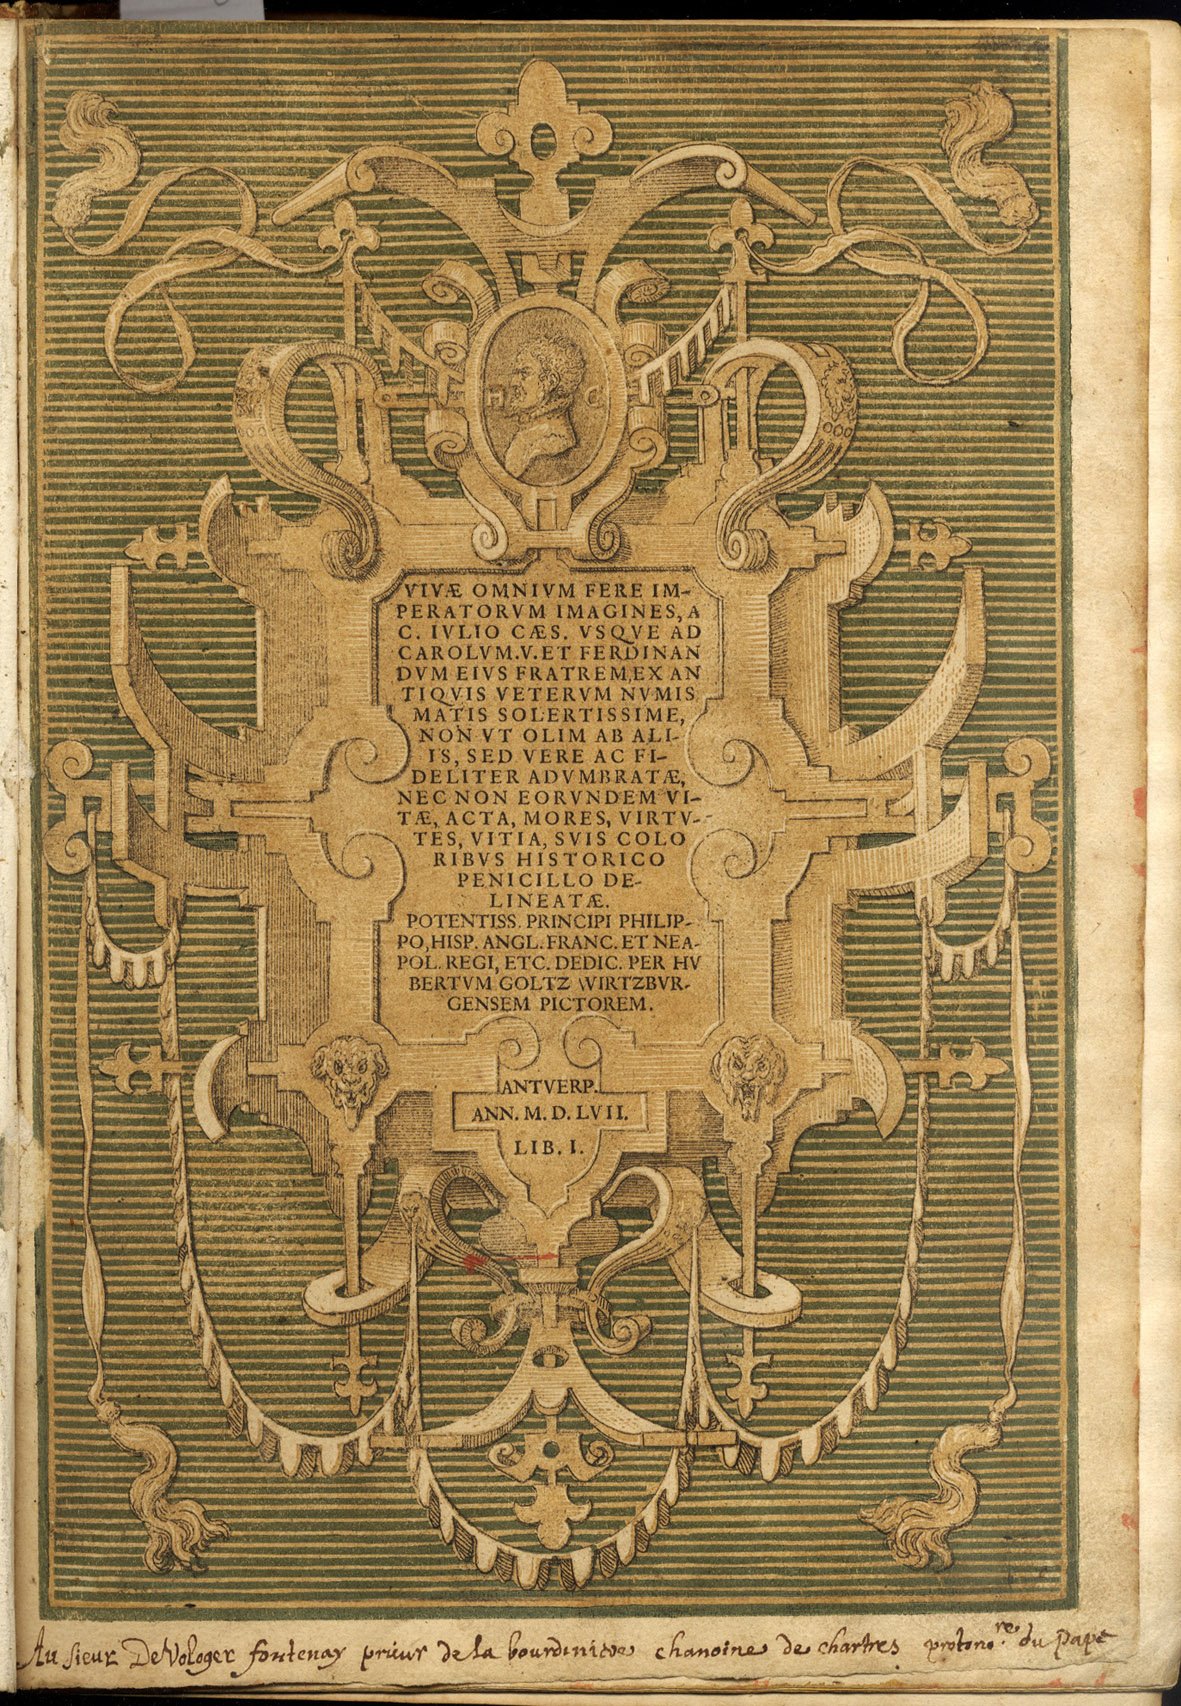 H C
VIVÆ OMNIVM FERE IM-
PERATORVM IMAGINES, A
C. IVLIO CÆS. VSQVE AD
CAROLVM.V.ET FERDINAN
DVM EIVS FRATREM,EX AN
TIQVIS VETERVM NVMIS
MATIS SOLERTISSIME,
NON VT OLIM AB ALI-
IS, SED VERE AC FI-
DELITER ADVMBRATÆ,
NEC NON EORVNDEM VI-
TÆ, ACTA, MORES, VIRTV-
TES, VITIA, SVIS COLO
RIBVS HISTORICO
PENICILLO DE-
LINEATÆ.
POTENTISS. PRINCIPI PHILIP-
PO, HISP. ANGL. FRANC. ET NEA-
POL. REGI, ETC. DEDIC. PER HV
BERTVM GOLTZ WIRTZBVR-
GENSEM PICTOREM.
ANTVERP.
ANN. M. D. LVII.
LIB. I.
Au sieur De Vologer fontenay priur de la chanoine de chartres protono.re du Pape